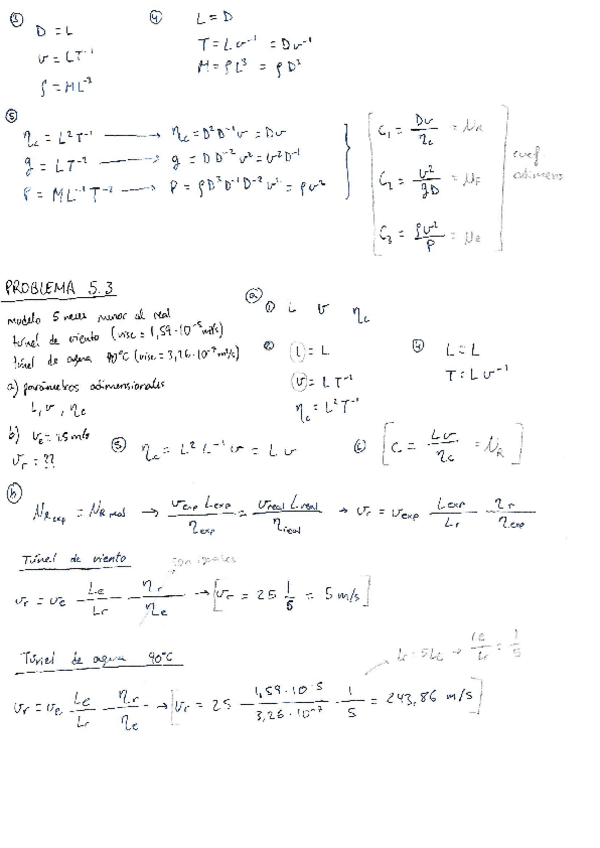 ③ D = L
v = LT⁻¹
ρ = ML⁻³
④ L = D
T = L v⁻¹ = D v⁻¹
M = ρL³ = ρD³
⑤
η_c = L²T⁻¹ → η_c = D²D⁻¹v = Dv
g = LT⁻² → g = DD⁻²v² = v²D⁻¹
P = ML⁻¹T⁻² → P = ρD³D⁻¹D⁻²v² = ρv²
C₁ = Dv/η_c = N_R
C₂ = v²/gD = N_F
C₃ = ρv²/P = N_E
coef
adimens
PROBLEMA 5.3
modelo 5 veces menor al real
túnel de viento (visc = 1,59·10⁻⁵ m²/s)
túnel de agua 90°C (visc = 3,26·10⁻⁷ m²/s)
a) parámetros adimensionales
L, v, η_c
b) v_e = 25 m/s
v_r = ??
ⓐ
① L v η_c
② (L) = L
(v) = LT⁻¹
η_c = L²T⁻¹
④ L = L
T = L v⁻¹
⑤ η_c = L² L⁻¹ v = L v
⑥ [C = Lv/η_c = N_R]
ⓑ
N_R exp = N_R real → v_exp L_exp/η_exp = v_real L_real/η_real → v_r = v_exp L_exp/L_r · η_r/η_exp
Túnel de viento
son iguales
v_r = v_e · L_e/L_r · η_r/η_e → [v_r = 25 1/5 = 5 m/s]
Túnel de agua 90°C
L_r = 5L_e → L_e/L_r = 1/5
v_r = v_e L_e/L_r · η_r/η_e → [v_r = 25 · 1,59·10⁻⁵/3,26·10⁻⁷ · 1/5 = 243,86 m/s]